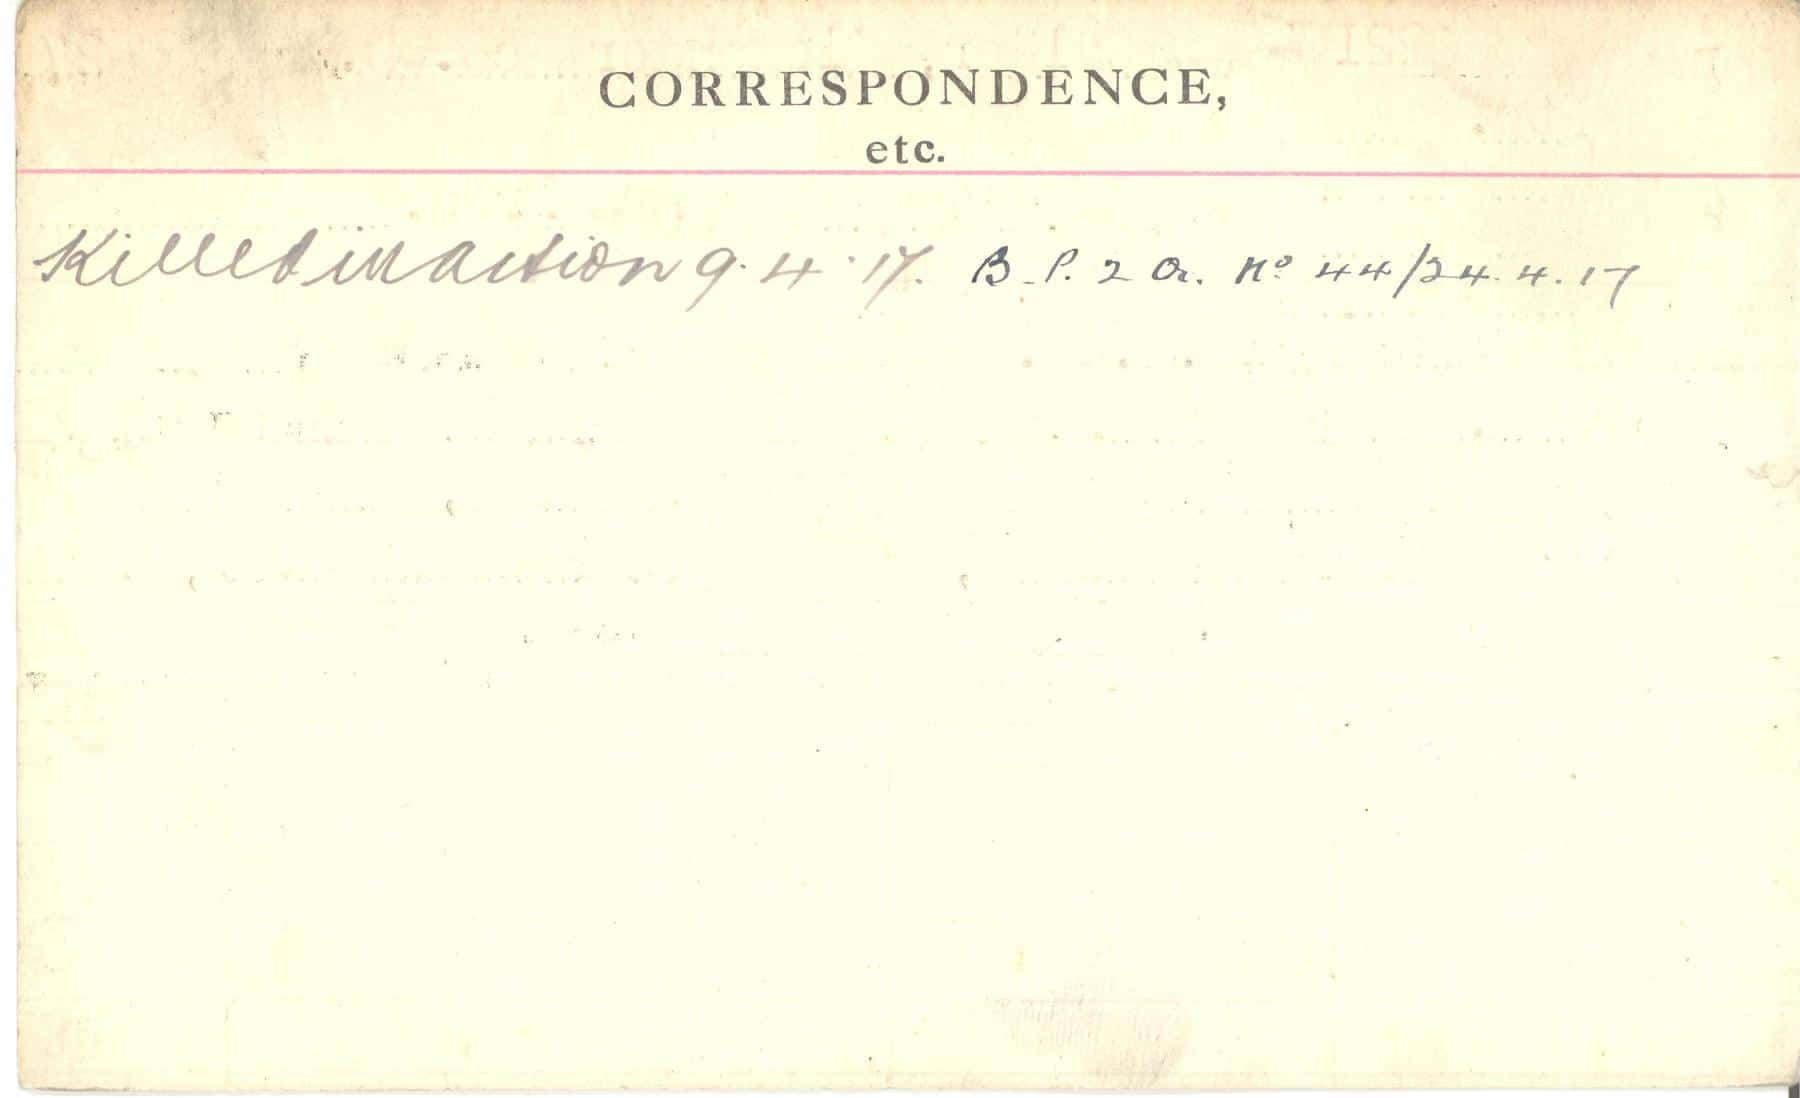 CORRESPONDENCE,
etc.
Killed in action 9.4.17. B.P. 2 a. No 44/24.4.17